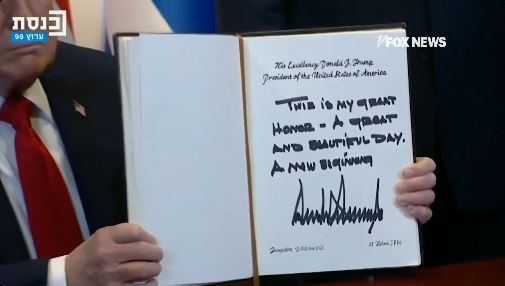 כנסת
ערוץ 99
FOX NEWS
His Excellency Donald J. Trump
President of the United States of America
THIS IS MY GREAT
HONOR - A GREAT
AND BEAUTIFUL DAY.
A NEW BEGINNING
Jerusalem, 13 October 2025